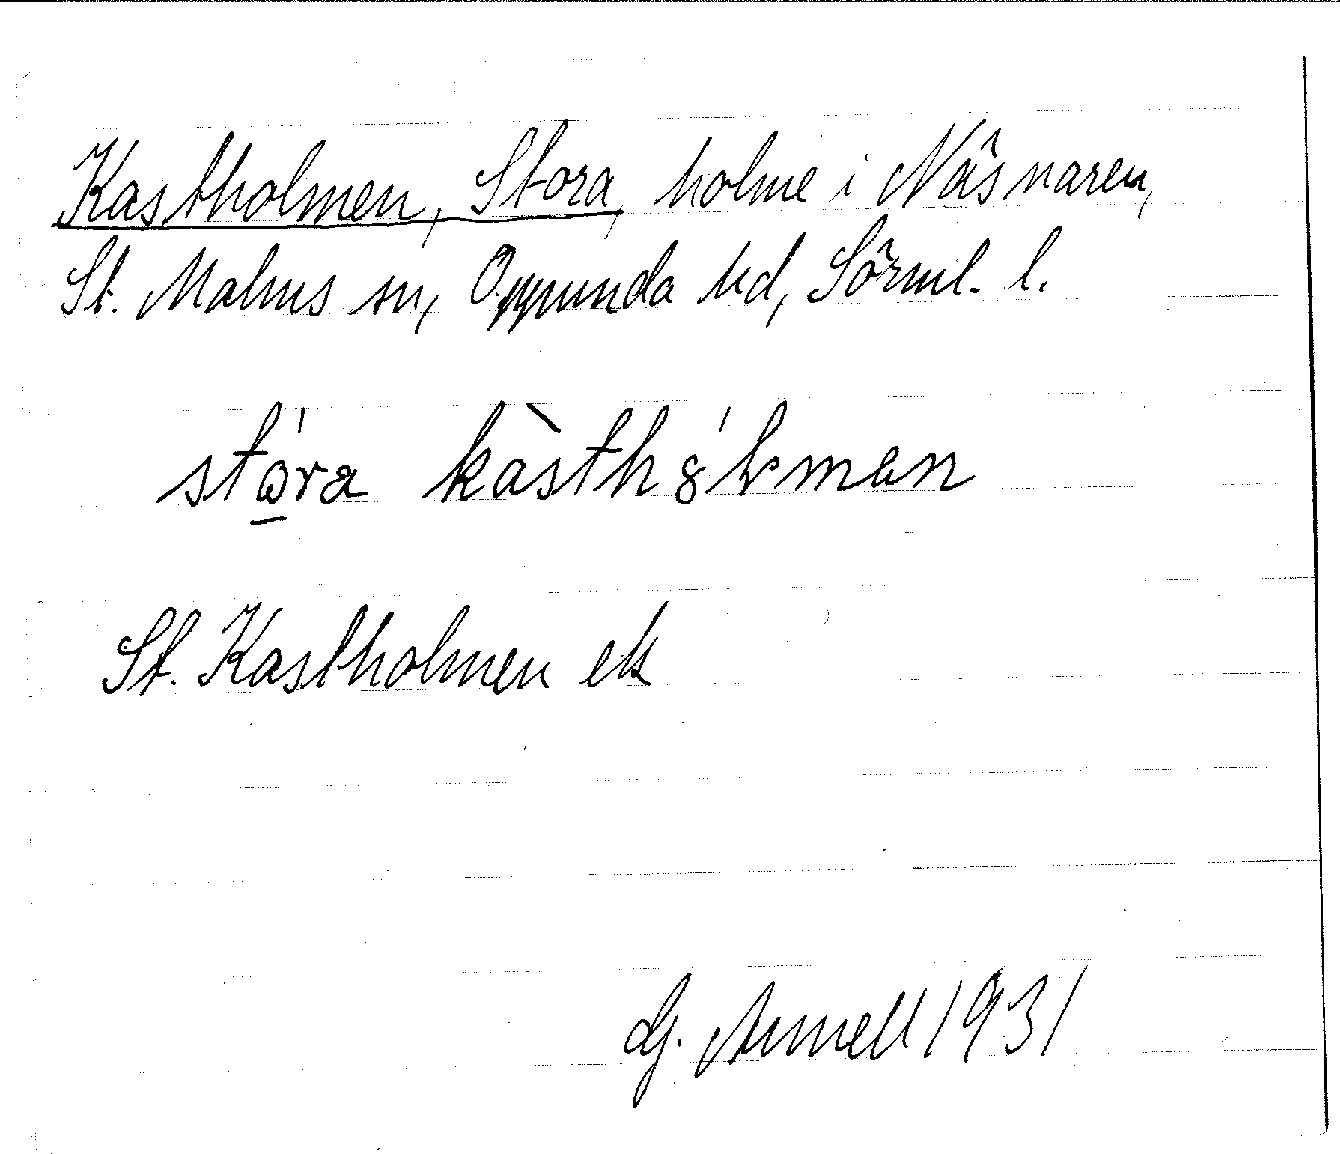 Kastholmen, Stora, holme i Näsnaren,
St. Malms sn, Oppunda hd, Sörml. l.
stɷ̱́ra kàsthȣ́lmən
St. Kastholmen ek
G. Arnell 1931